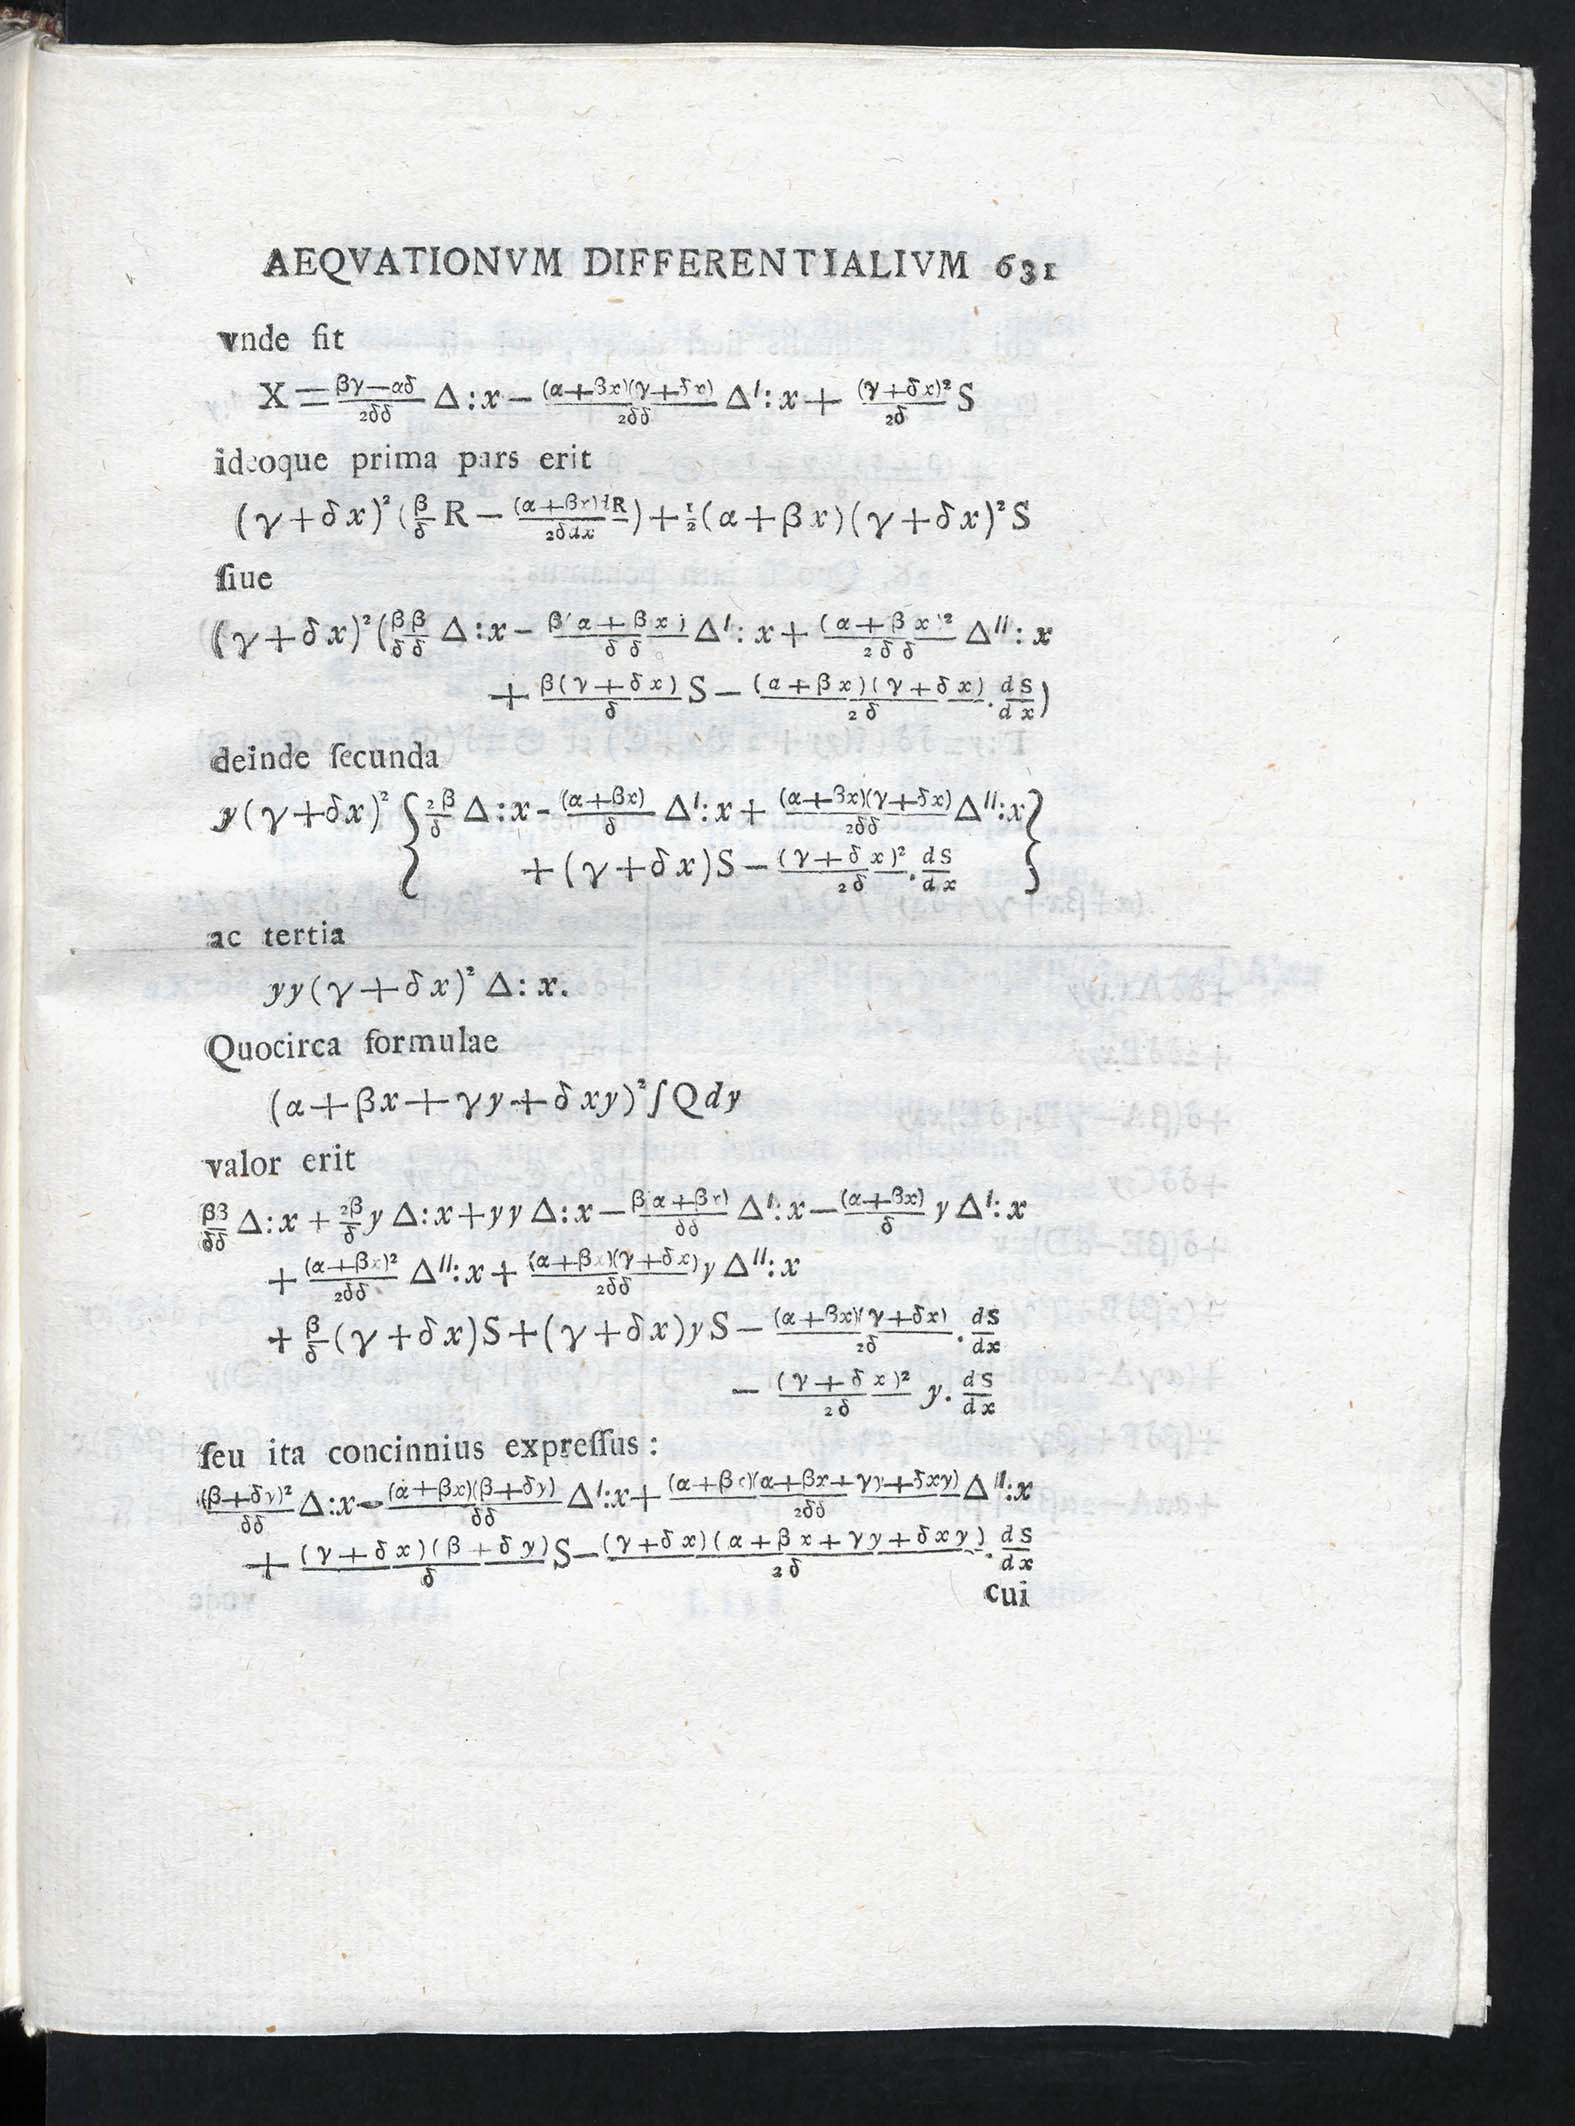 AEQVATIONVM DIFFERENTIALIVM 631
vnde fit
X = \frac{βγ−αδ}{2δδ} Δ : x − \frac{(α+βx)(γ+δx)}{2δδ} Δ^{I} : x + \frac{(γ+δx)^2}{2δ} S
ideoque prima pars erit
(γ+δx)^2 (\frac{β}{δ} R − \frac{(α+βx)dR}{2δdx}) + \frac{1}{2}(α+βx)(γ+δx)^2 S
ſiue
(γ+δx)^2 (\frac{ββ}{δδ} Δ : x − \frac{β(α+βx)}{δδ} Δ^{I} : x + \frac{(α+βx)^2}{2δδ} Δ^{II} : x
+ \frac{β(γ+δx)}{δ} S − \frac{(α+βx)(γ+δx)}{2δ} . \frac{dS}{dx})
deinde ſecunda
y(γ+δx)^2 { \frac{2β}{δ} Δ : x − \frac{(α+βx)}{δ} Δ^{I} : x + \frac{(α+βx)(γ+δx)}{2δδ} Δ^{II} : x }
+ (γ+δx)S − \frac{(γ+δx)^2}{2δ} . \frac{dS}{dx}
ac tertia
yy(γ+δx)^2 Δ : x.
Quocirca formulae
(α+βx+γy+δxy)^2 ∫Qdy
valor erit
\frac{ββ}{δδ} Δ : x + \frac{2β}{δ} y Δ : x + yy Δ : x − \frac{β(α+βx)}{δδ} Δ^{I} : x − \frac{(α+βx)}{δ} y Δ^{I} : x
+ \frac{(α+βx)^2}{2δδ} Δ^{II} : x + \frac{(α+βx)(γ+δx)}{2δδ} y Δ^{II} : x
+ \frac{β}{δ} (γ+δx)S + (γ+δx)yS − \frac{(α+βx)(γ+δx)}{2δ} . \frac{dS}{dx}
− \frac{(γ+δx)^2}{2δ} y. \frac{dS}{dx}
ſeu ita concinnius expreſſus :
\frac{(β+δy)^2}{δδ} Δ : x − \frac{(α+βx)(β+δy)}{δδ} Δ^{I} : x + \frac{(α+βx)(α+βx+γy+δxy)}{2δδ} Δ^{II} : x
+ \frac{(γ+δx)(β+δy)}{δ} S − \frac{(γ+δx)(α+βx+γy+δxy)}{2δ} . \frac{dS}{dx}
cui